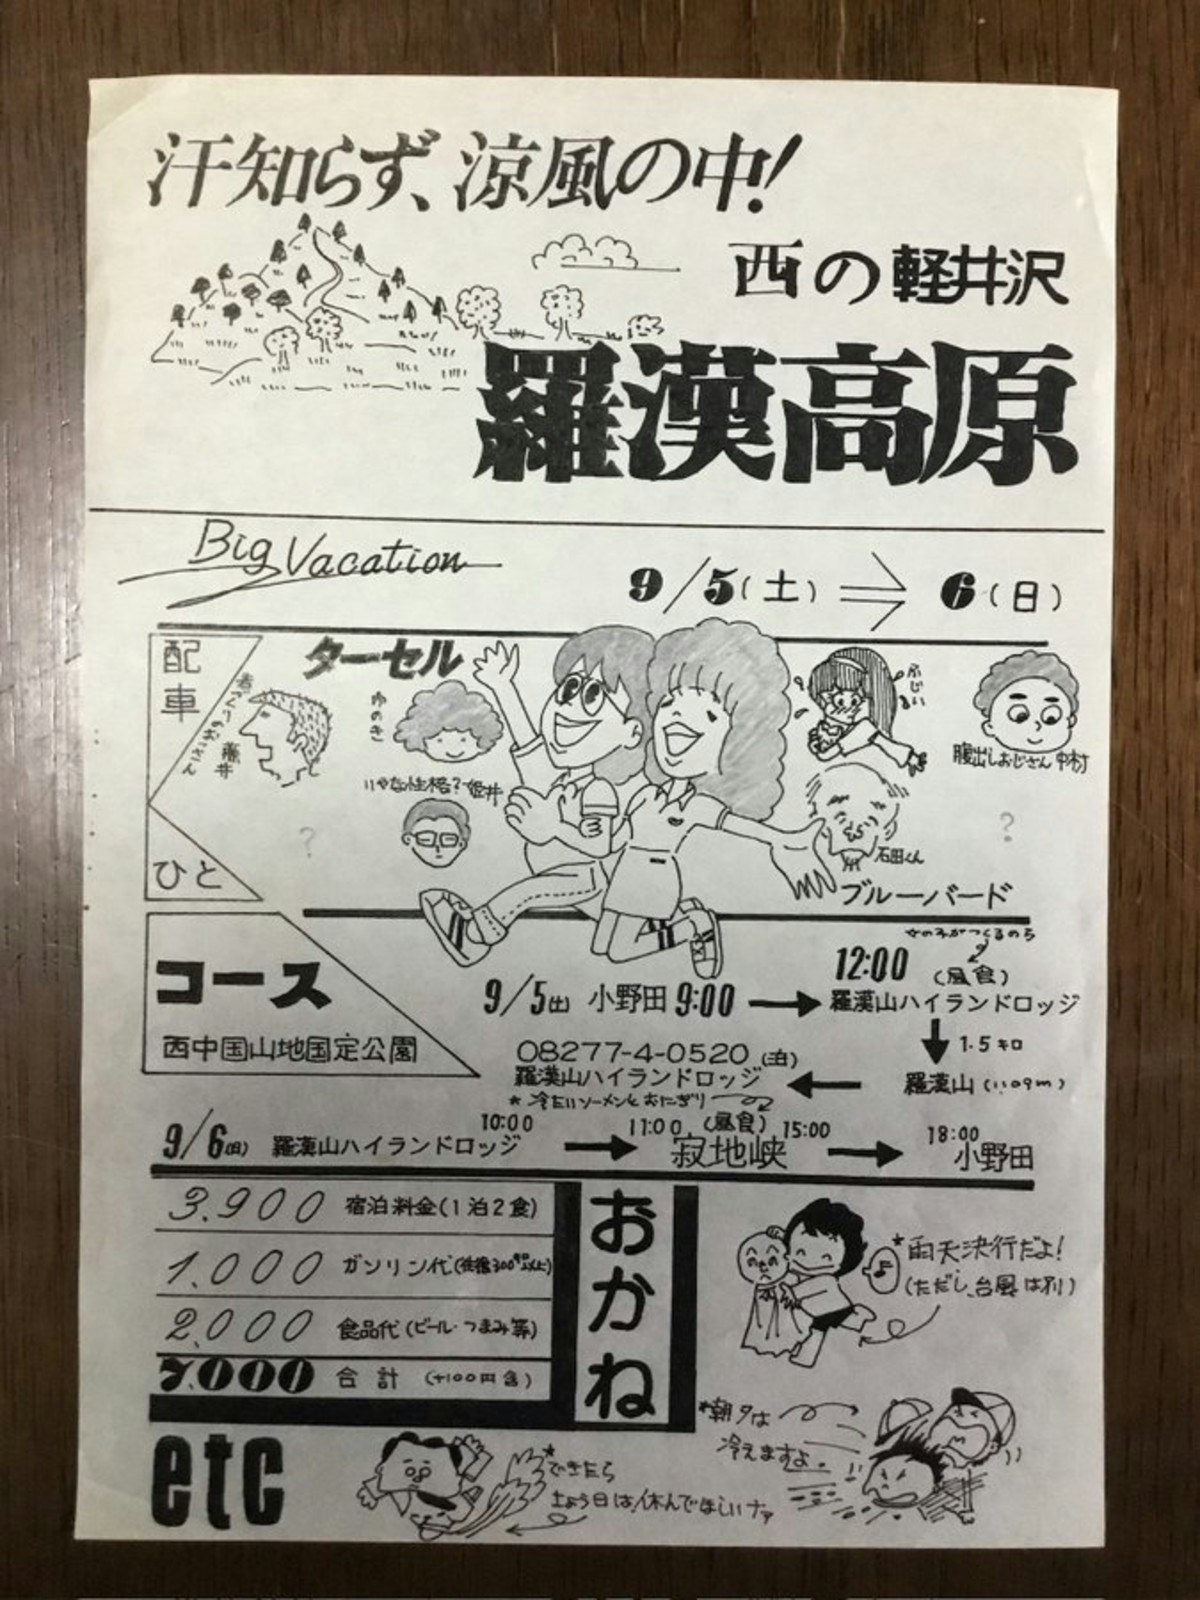 汗知らず、涼風の中!
西の軽井沢
羅漢高原
Big Vacation
9/5(土) ⇒ 6(日)
配車
ひと
ターセル
藤井
ゆのき
いやな性格?姫井
?
ふじい
腹出しおじさん 中村
石田くん
?
ブルーバード
コース
西中国山地国定公園
女の子がつくるのら
9/5(土) 小野田 9:00 → 12:00 (昼食) 羅漢山ハイランドロッジ
↓ 1.5キロ
羅漢山 (1109m)
←
08277-4-0520 (泊)
羅漢山ハイランドロッジ
* 冷たいソーメンとおにぎり
9/6(日) 羅漢山ハイランドロッジ 10:00 → 11:00 (昼食) 寂地峡 15:00 → 18:00 小野田
おかね
3.900 宿泊料金(1泊2食)
1.000 ガソリン代(往復300キロ以上)
2.000 食品代(ビール・つまみ等)
7.000 合計 (+100円含)
*雨天決行だよ!
(ただし、台風は別)
*朝夕は
冷えますよ。
etc
*できたら
土よう日は、休んでほしいナァ